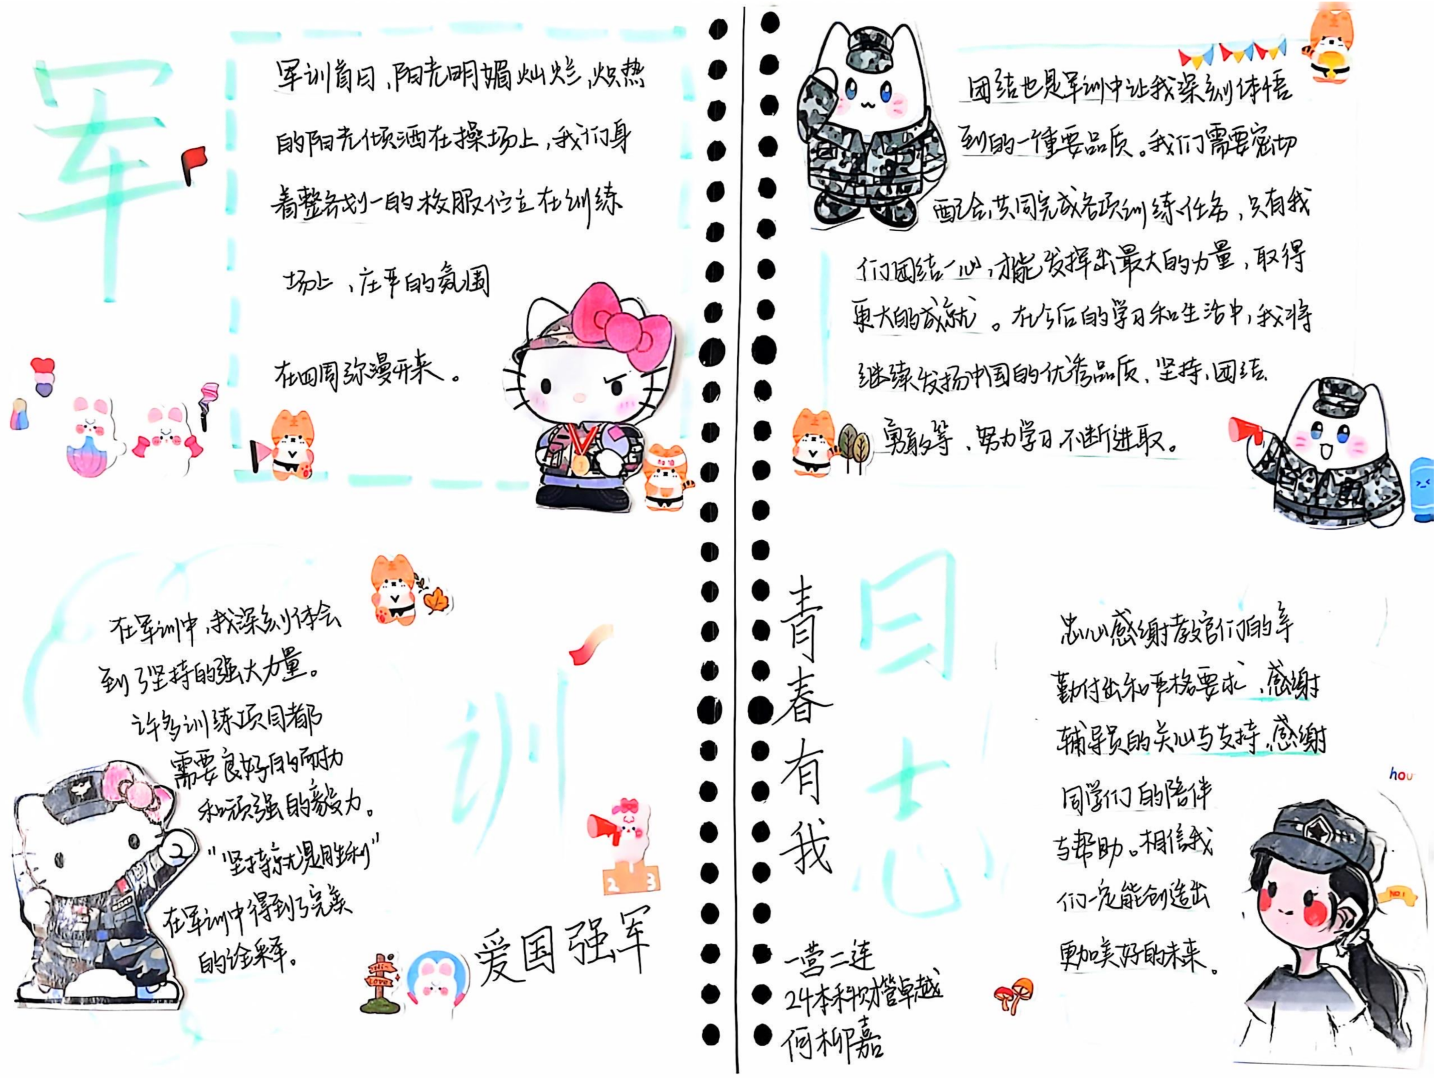 军
军训首日，阳光明媚灿烂，炽热
的阳光倾洒在操场上，我们身
着整齐划一的校服伫立在训练
场上，庄严的氛围
在四周弥漫开来。
在军训中，我深刻体会
到了坚持的强大力量。
许多训练项目都
需要良好的耐力
和顽强的毅力。
“坚持就是胜利”
在军训中得到了完美
的诠释。
训
2 3
爱国强军
团结也是军训中让我深刻体悟
到的一重要品质。我们需要密切
配合，共同完成各项训练任务，只有我
们团结一心，才能发挥出最大的力量，取得
更大的成就。在今后的学习和生活中，我将
继续发扬中国的优秀品质，坚持，团结，
勇敢等，努力学习不断进取。
青春有我
日志
一营二连
24本科财管卓越
何柳嘉
忠心感谢教官们的辛
勤付出和严格要求，感谢
辅导员的关心与支持，感谢
同学们的陪伴
与帮助。相信我
们一定能创造出
更加美好的未来。
hou
NO.1